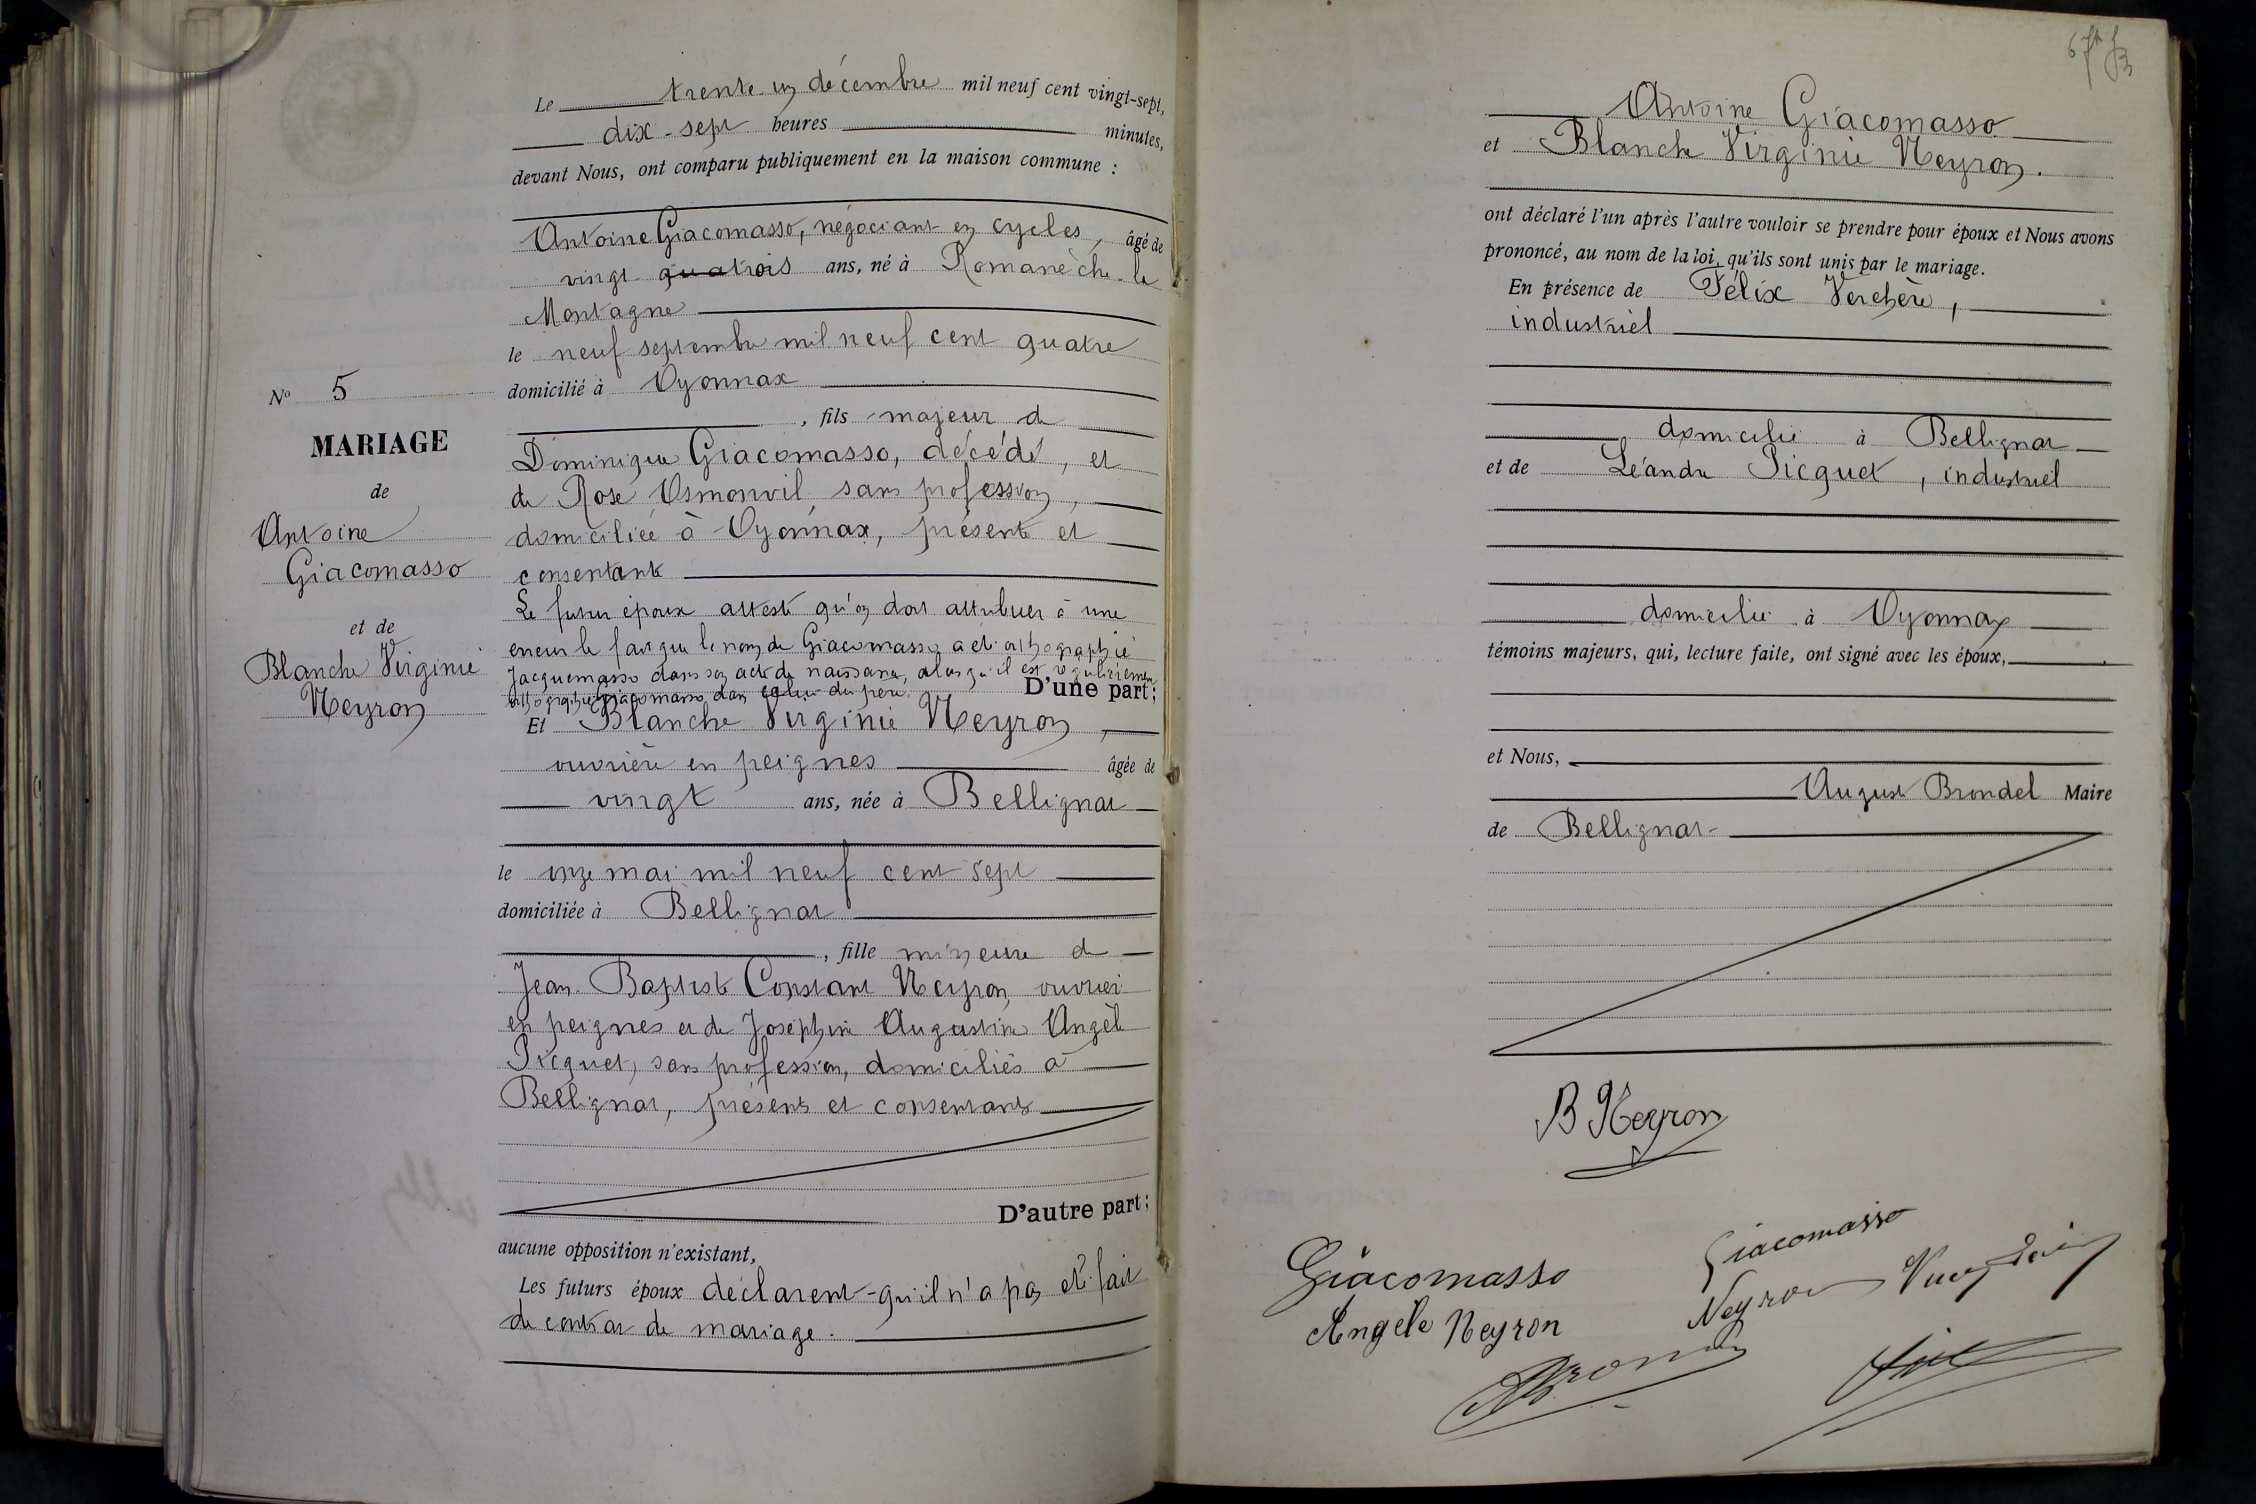 Le trente un décembre mil neuf cent vingt-sept,
dix-sept heures minutes,
devant Nous, ont comparu publiquement en la maison commune :
Antoine Giacomasso, négociant en cycles, âgé de
vingt trois ans, né à Romanèche la
Montagne
le neuf septembre mil neuf cent quatre
domicilié à Oyonnax
, fils majeur de
Dominique Giacomasso, décédé, et
de Rose sans profession,
domiciliée à Oyonnax, présente et
consentante
Le futur époux atteste qu'on doit attribuer à une
erreur le fait que le nom de Giacomasso a été orthographié
Jacquemasso dans son acte de naissance, alors qu'il est régulièrement
orthographié Giacomasso dans celui du père.
D'une part ;
Et Blanche Virginie Neyron,
ouvrière en peignes âgée de
vingt ans, née à Bellignat
le onze mai mil neuf cent sept
domiciliée à Bellignat
, fille mineure de
Jean Baptiste Constant Neyron ouvrier
en peignes et de Joséphine Augustine Angèle
Picquet, sans profession, domiciliés à
Bellignat, présents et consentants
D'autre part :
aucune opposition n'existant,
Les futurs époux déclarent qu'il n'a pas été fait
de contrat de mariage.
No 5
MARIAGE
de
Antoine
Giacomasso
et de
Blanche Virginie
Neyron
67
Antoine Giacomasso
et Blanche Virginie Neyron.
ont déclaré l'un après l'autre vouloir se prendre pour époux et Nous avons
prononcé, au nom de la loi, qu'ils sont unis par le mariage.
En présence de Félix Verchère,
industriel
domicilié à Bellignat
et de Léandre Picquet, industriel
domicilié à Oyonnax
témoins majeurs, qui, lecture faite, ont signé avec les époux,
et Nous,
Auguste Brondel Maire
de Bellignat
B Neyron
Giacomasso
Giacomasso
Neyron
Angèle Neyron